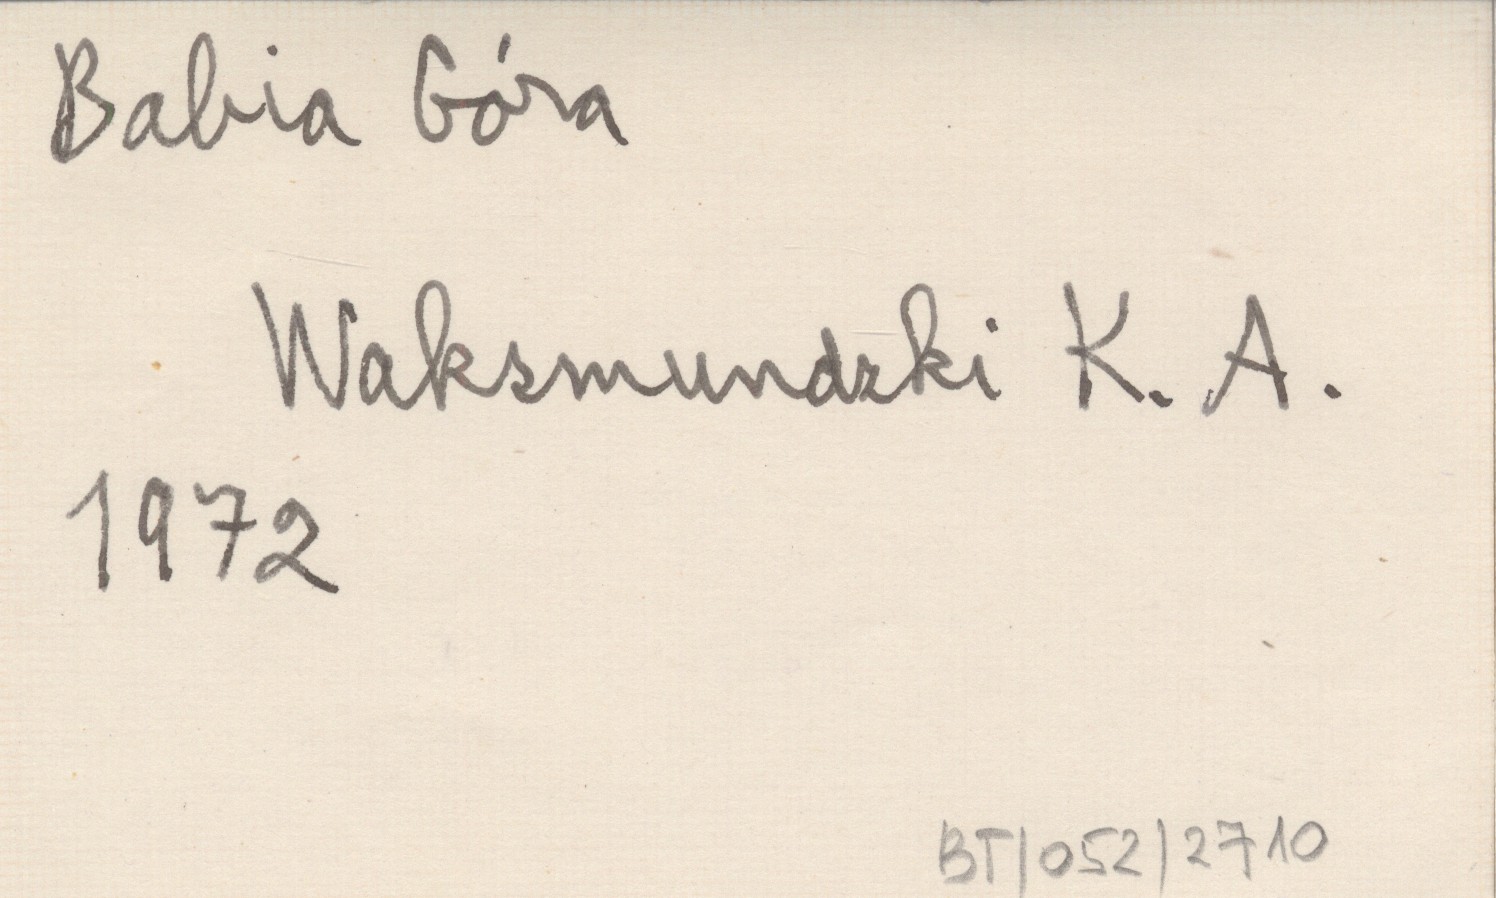 Babia Góra
Waksmundzki K. A.
1972
BT/052/2710